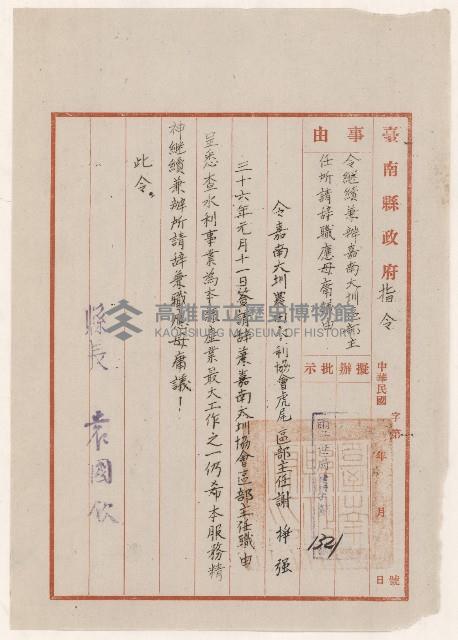 臺南縣政府指令
事由
令繼續兼辦嘉南大圳區部主
任所請辞職應毋庸議由
擬辦批示
中華民國 年 月 日
字第 號
1321
令嘉南大圳農田水利協會虎尾區部主任謝掙强
三十六年元月十一日簽請辞兼嘉南大圳協會區部主任職由
呈悉查水利事業為本縣產業最大工作之一仍希本服務精
神継續兼辦所請辞兼職應毋庸議！
此令。
縣長 袁國欽
高雄市立歷史博物館
KAOHSIUNG MUSEUM OF HISTORY